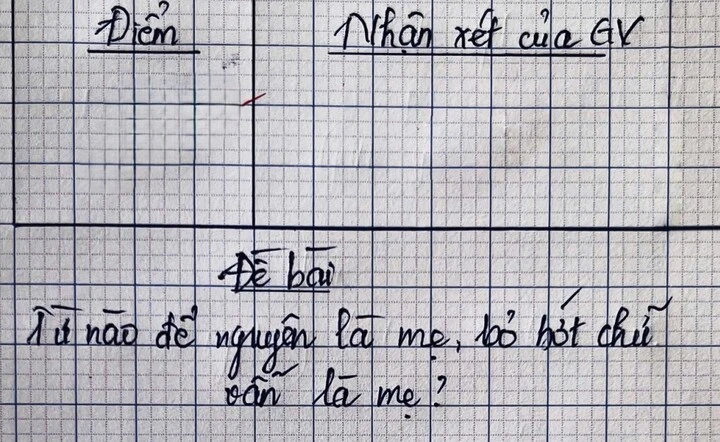 Điểm
Nhận xét của GV
Đề bài
Từ nào để nguyên là mẹ, bỏ bớt chữ
vẫn là mẹ?